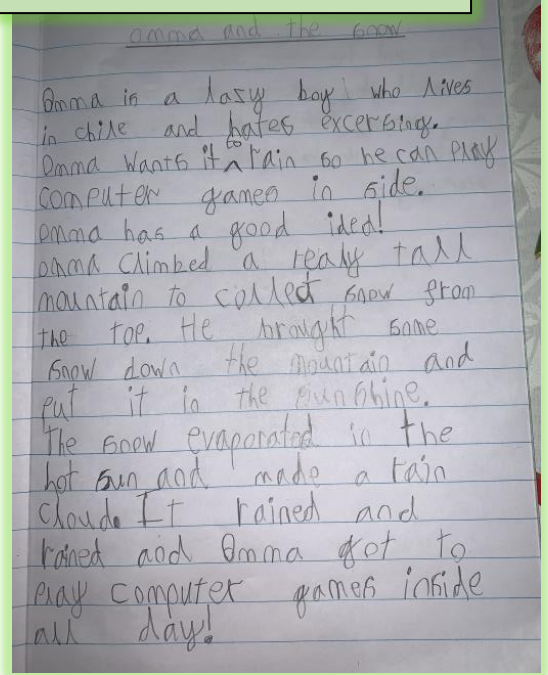 Omma and the snow
Omma is a lasy boy who lives
in chile and hates excersing.
Omma wants it to rain so he can play
computer games in side.
omma has a good idea!
omma climbed a realy tall
mountain to collect snow from
the top. He brought some
snow down the mountain and
put it in the sunshine.
The snow evaporated in the
hot sun and made a rain
cloud. It rained and
rained and Omma got to
play computer games inside
all day!